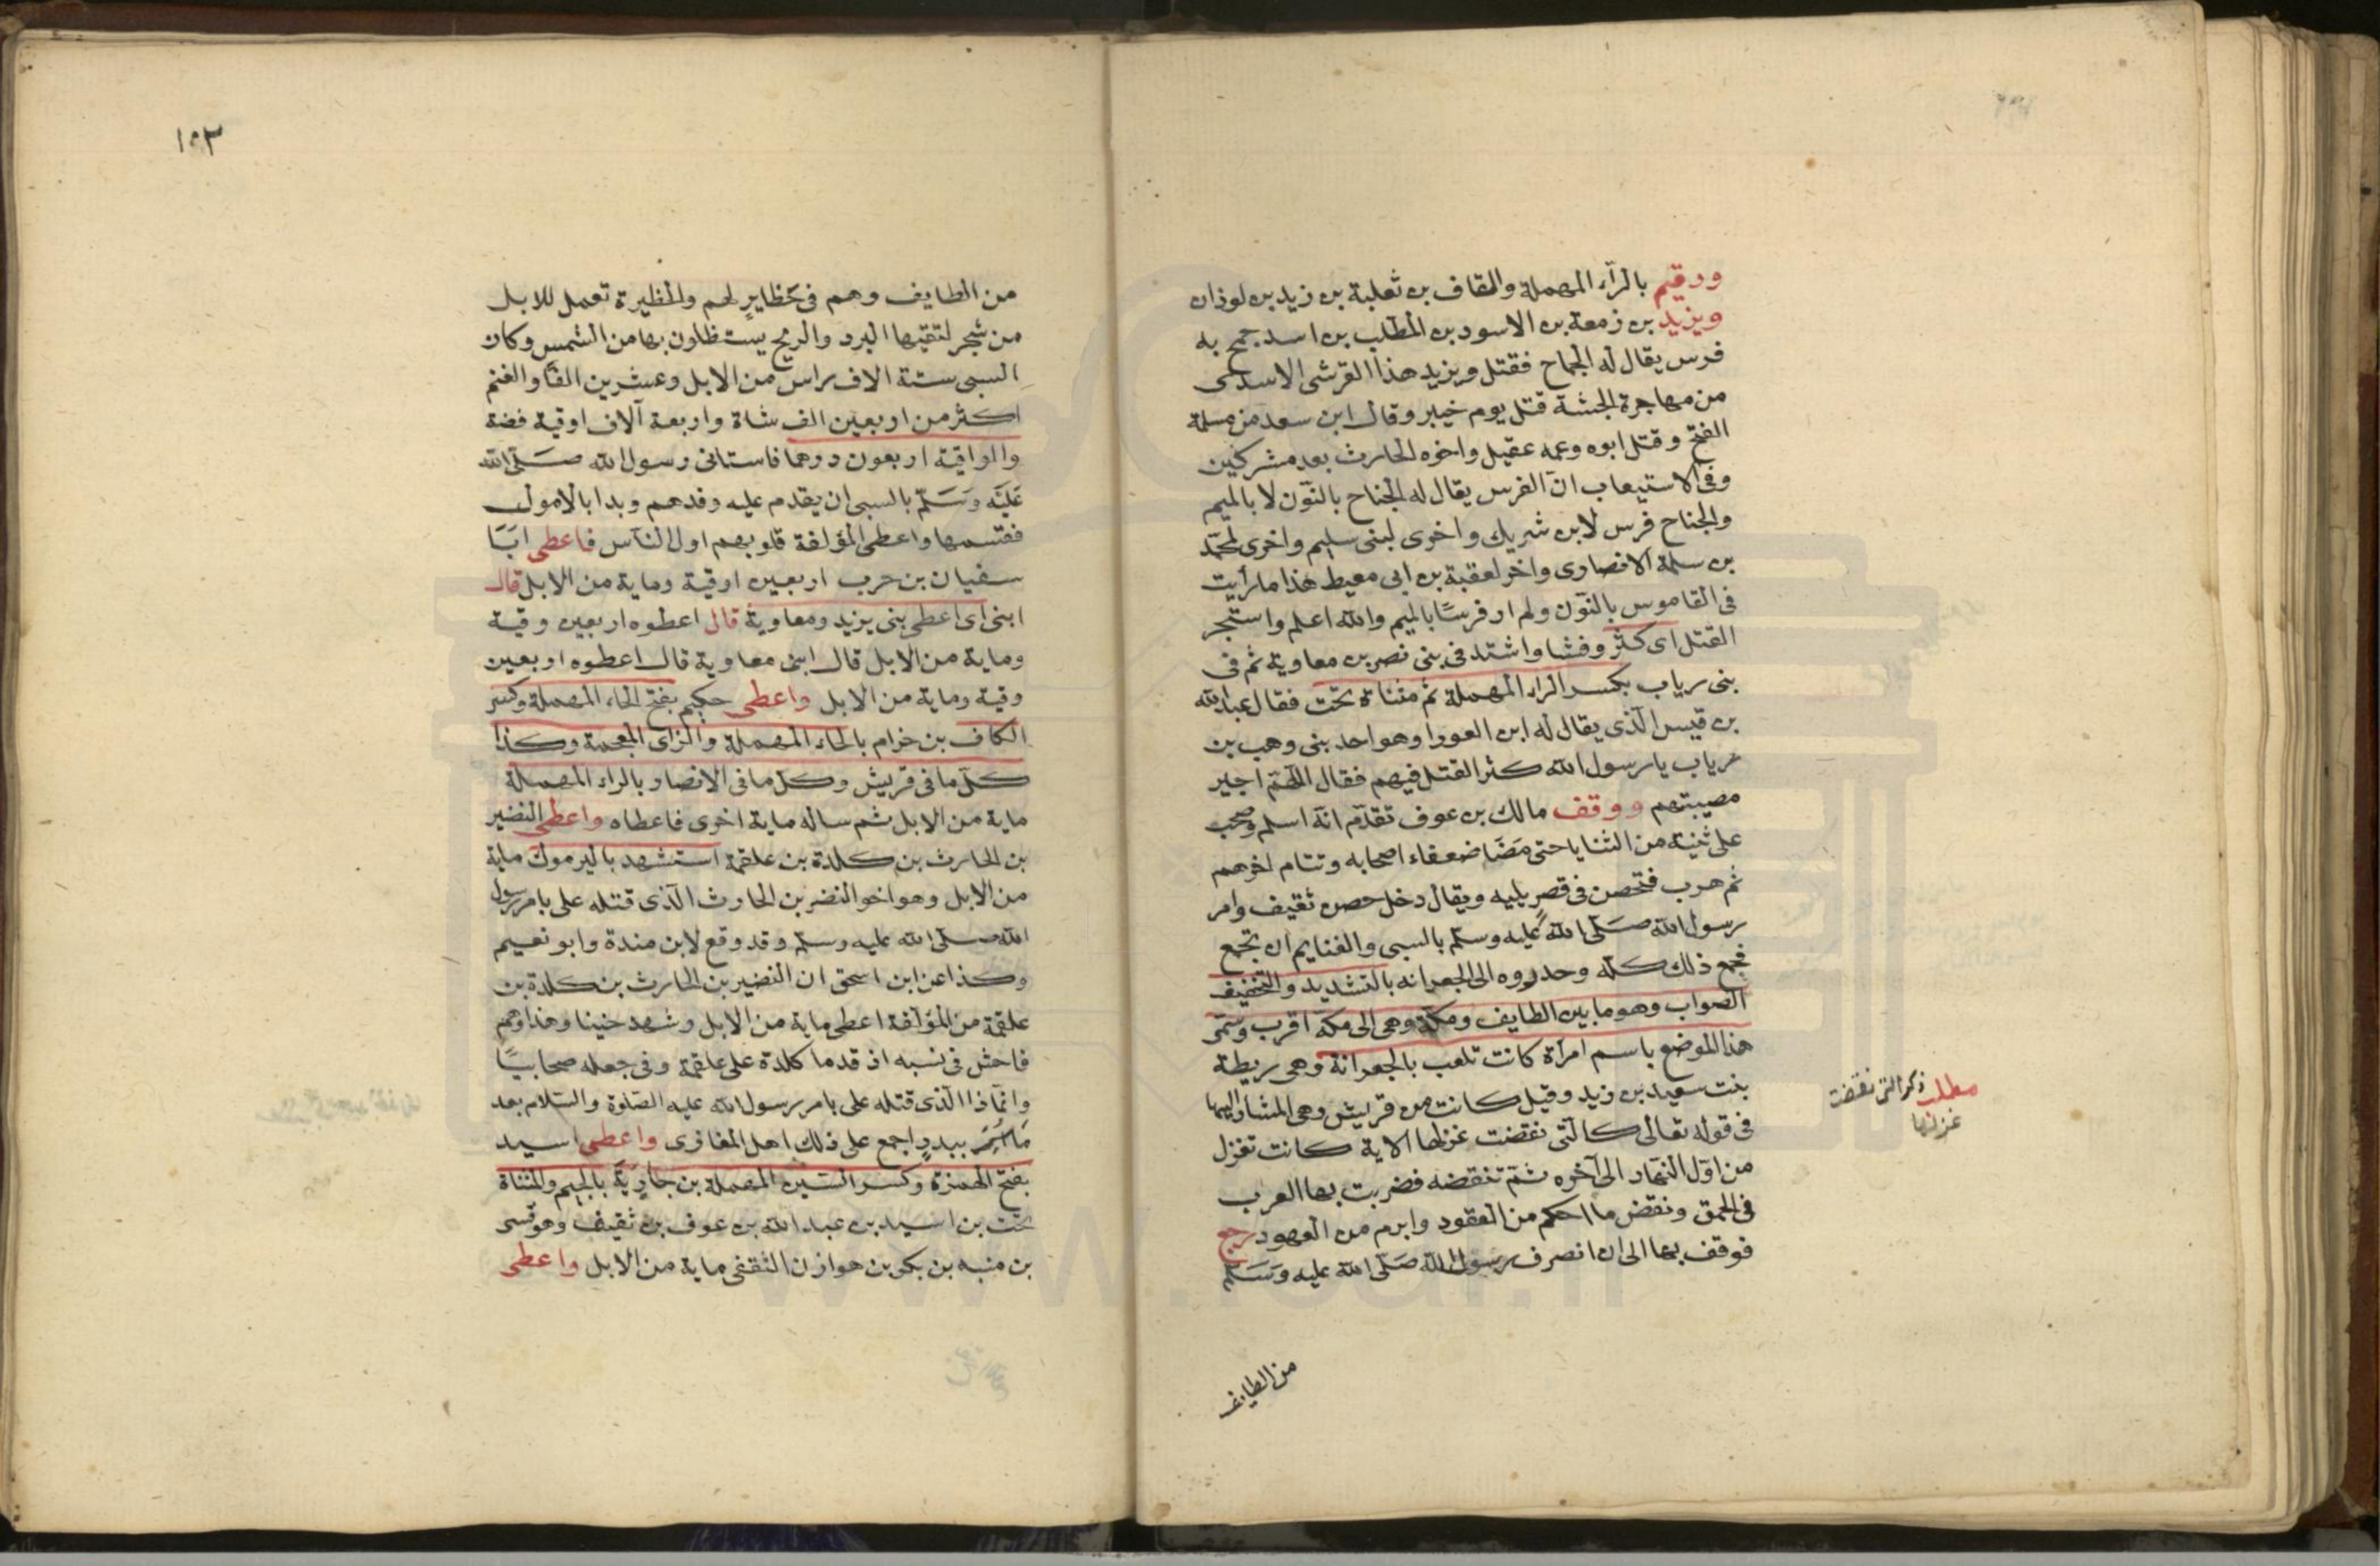 ورقيم بالراء المهملة والقاف بن ثعلبة بن زيد بن لوذان
ويزيد بن زمعة بن الاسود بن المطلب بن اسد جمح به
فرس يقال له الجماح فقتل ويزيد هذا القرشى الاسدى
من مهاجرة الحبشة قتل يوم خيبر وقال ابن سعد من مسلمة
الفتح وقتل ابوه وعمه عقيل واخوه الحارث بعد مشركين
وفى الاستيعاب انّ الفرس يقال له الجناح بالنّون لا بالميم
والجناح فرس لابن شريك واخرى لبنى سليم واخرى لمحمّد
بن سلمة الانصارى واخر لعقبة بن ابى معيط هذا ما رأيت
فى القاموس بالنّون ولم ار فرسًا بالميم والله اعلم واستجر
القتل اى كثر وفشا واشتد فى بنى نصر بن معاوية ثم فى
بنى رياب بكسر الراء المهملة ثم مثناة تحت فقال عبد الله
بن قيس الّذى يقال له ابن العورا وهو احد بنى وهب بن
رياب يا رسول الله كثر القتل فيهم فقال اللّهمّ اجبر
مصيبتهم ووقف مالك بن عوف تقدّم انّه اسلم وصحب
على ثنية من الثنايا حتى مَضَا ضعفاء اصحابه وتتام اخرهم
ثم هرب فتحصن فى قصر بليه ويقال دخل حصن ثقيف وامر
رسول الله صَلّى اللهُ عليه وسلّم بالسبى والغنايم ان تجمع
فجمع ذلك كلّه وحدروه الى الجعرانه بالتشديد والتخفيف
الصواب وهو ما بين الطايف ومكة وهى الى مكّة اقرب وسمّى
هذا الموضع باسم امرأة كانت تلعب بالجعرانة وهى ريطة
بنت سعيد بن زيد وقيل كانت من قريش وهى المشار اليها
فى قوله تعالى كالّتى نقضت غزلها الاية كانت تغزل
من اوّل النّهار الى آخره ثمّ تنقضه فضربت بها العرب
فى الحمق ونقض ما احكم من العقود وابرم من العهود رجع
فوقف بها الى ان انصرف رسول الله صَلّى الله عليه وَسَلّم
مطلب ذكر التى نقضت
غزلها
من الطايف
١٥٣
من الطايف وهم فى حظايرٍ لهم والحظيرة تعمل للابل
من شجر لتقيها البرد والريح يستظلون بها من الشمس وكان
السبى ستة الاف راس من الابل وعشرين الفًا والغنم
اكثر من اربعين الف شاة واربعة آلاف اوقية فضة
والواقية اربعون درهما فاستانى رسول الله صَلّى الله
عَلَيْه وَسَلّم بالسبى ان يقدم عليه وفدهم وبدا بالامول
فقتسمها واعطى المؤلفة قلوبهم اول النّاس فاعطى ابَا
سفيان بن حرب اربعين اوقية وماية من الابل قال
ابنى اى اعطى بنى يزيد ومعاوية قال اعطوه اربعين وقية
وماية من الابل قال ابنى معاوية قال اعطوه اربعين
وقية وماية من الابل واعطى حكيم بفتح الحاء المهملة وكسر
الكاف بن خرام بالحاء المهملة والزاى المعجمة وكذا
كلّ ما فى قريش وكل ما فى الانصار بالراء المهملة
ماية من الابل ثم ساله ماية اخرى فاعطاه واعطى النضير
بن الحارث بن كلدة بن علقمة استشهد باليرموك ماية
من الابل وهو اخو النضر بن الحارث الّذى قتله على بامر رسول
الله صلّى الله عليه وسلّم وقد وقع لابن مندة وابو نعيم
وكذا عن ابن اسحق ان النضير بن الحارث بن كلدة بن
علقمة من المؤلفة اعطى ماية من الابل وشهد حنينا وهذا وهم
فاحش فى نسبه اذ قدما كلدة على علقمة وفى جعله صحابيًّا
وانّما ذا الّذى قتله على بامر رسول الله عليه الصّلوة والسّلام بعد
ببدرٍ اجمع على ذلك اهل المغازى واعطى اسيد
بفتح الهمزة وكسر السّين المهملة بن جاريةَ بالجيم والمثناة
تحت بن اسيد بن عبد الله بن عوف بن ثقيف وهو قسى
بن منبه بن بكر بن هوازن الثقفى ماية من الابل واعطى